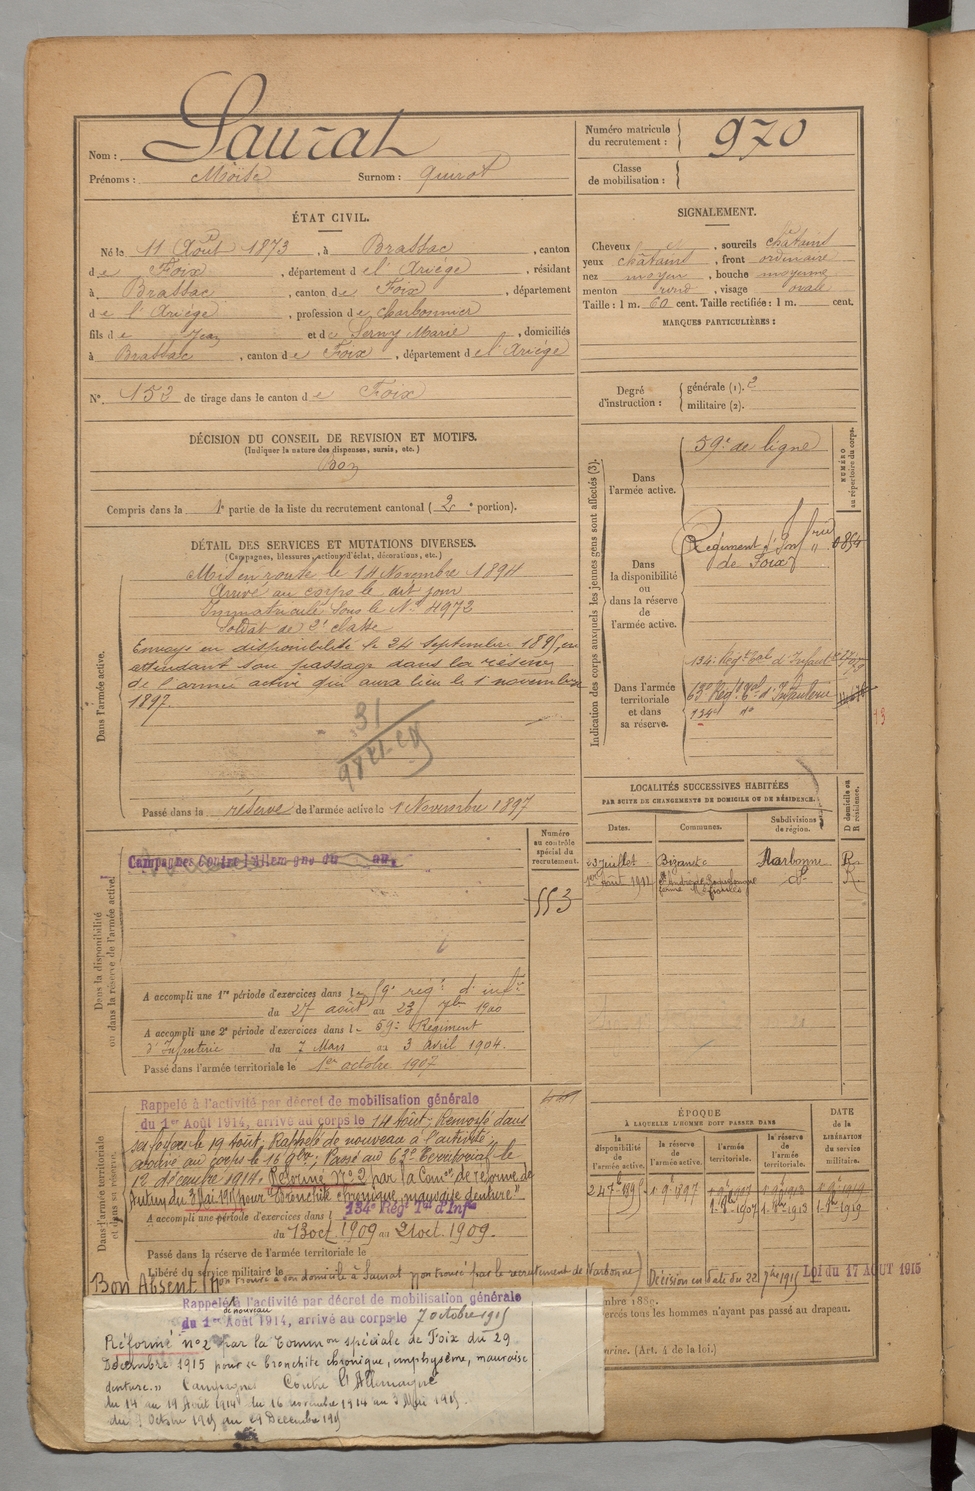 Nom : Saurat
Prénoms : Moïse Surnom : Quirot
Numéro matricule du recrutement : 970
Classe de mobilisation :
ÉTAT CIVIL.
Né le 11 Août 1873, à Brassac, canton
de Foix, département de l'Ariège, résidant
à Brassac, canton de Foix, département
de l'Ariège, profession de charbonnier
fils de Jean et de Serny Marie, domiciliés
à Brassac, canton de Foix, département de l'Ariège
N° 153 de tirage dans le canton de Foix
DÉCISION DU CONSEIL DE REVISION ET MOTIFS.
(Indiquer la nature des dispenses, sursis, etc.)
Bon
Compris dans la 1e partie de la liste du recrutement cantonal (2e portion).
SIGNALEMENT.
Cheveux et, sourcils châtains
yeux châtains, front ordinaire
nez moyen, bouche moyenne
menton rond, visage ovale
Taille : 1 m. 60 cent. Taille rectifiée : 1 m. cent.
MARQUES PARTICULIÈRES :
Degré d'instruction : générale (1). 2
militaire (2).
DÉTAIL DES SERVICES ET MUTATIONS DIVERSES.
(Campagnes, blessures, actions d'éclat, décorations, etc.)
Dans l'armée active.
Mis en route le 14 Novembre 1894
Arrivé au corps le dit jour
Immatriculé sous le N° 4972
Soldat de 2e classe
Envoyé en disponibilité le 24 Septembre 1895, en
attendant son passage dans la réserve
de l'armée active qui aura lieu le 1er novembre
1897.
31
Passé dans la réserve de l'armée active le 1 Novembre 1897
Indication des corps auxquels les jeunes gens sont affectés (3).
NUMÉRO au répertoire du corps.
Dans l'armée active.
59e de ligne
Dans la disponibilité ou dans la réserve de l'armée active.
Régiment d'Infrie
de Foix
Dans l'armée territoriale et dans sa réserve.
134e Régt Tal d'Infant
63e Régt Tal d'Infanterie
134e do
LOCALITÉS SUCCESSIVES HABITÉES
PAR SUITE DE CHANGEMENTS DE DOMICILE OU DE RÉSIDENCE.
Dates. Communes. Subdivisions de région. D domicile ou R résidence.
Juillet Bizanet Narbonne R
1er août 1911 do R
Dans la disponibilité ou dans la réserve de l'armée active.
Numéro au contrôle spécial du recrutement.
Campagnes Contre l'Allemagne du au
553
A accompli une 1re période d'exercices dans le 59e régt d'infie
du 27 août au 23 7bre 1900
A accompli une 2e période d'exercices dans le 59e Régiment
d'Infanterie du 7 Mars au 3 avril 1904.
Passé dans l'armée territoriale le 1er octobre 1907
Dans l'armée territoriale et dans sa réserve.
Rappelé à l'activité par décret de mobilisation générale
du 1er Août 1914, arrivé au corps le 14 Août, Renvoyé dans
ses foyers le 19 Août, Rappelé de nouveau à l'activité,
arrivé au corps le 16 9bre ; Passé au 63e Territorial le
12 décembre 1914. Réformé N° 2 par la Comon de réforme de
Autun du 3 Mai 1915 pour "Bronchite chronique, mauvaise denture."
A accompli une période d'exercices dans l 134e Régt Tal d'Infie
du 13 oct. 1909 au 21 oct. 1909.
Passé dans la réserve de l'armée territoriale le
Libéré du service militaire le
Bon Absent (non trouvé à son domicile à Saurat, non trouvé par le recrutement de Narbonne) Décision en date du 22 7bre 1915 Loi du 17 AOUT 1915
ÉPOQUE
À LAQUELLE L'HOMME DOIT PASSER DANS
la disponibilité de l'armée active. la réserve de l'armée active. l'armée territoriale. la réserve de l'armée territoriale.
DATE DE LA LIBÉRATION du service militaire.
24 7b 1895 1 9e 1897 1 9e 1907 1 9e 1913 1 9e 1919
1. 8bre 1907 1. 8bre 1913 1. 8bre 1919
mbre 1889.
vercés tous les hommes n'ayant pas passé au drapeau.
(Art. 4 de la loi.)
Rappelé à l'activité par décret de mobilisation générale
de nouveau
du 1er Août 1914, arrivé au corps le 7 octobre 1915
Réformé n° 2 par la Common spéciale de Foix du 29
Décembre 1915 pour "bronchite chronique, emphysème, mauvaise
denture." Campagne Contre l'Allemagne
du 14 au 19 Août 1914 du 16 novembre 1914 au 3 Mai 1915.
du 7 Octobre 1915 au 29 Décembre 1915